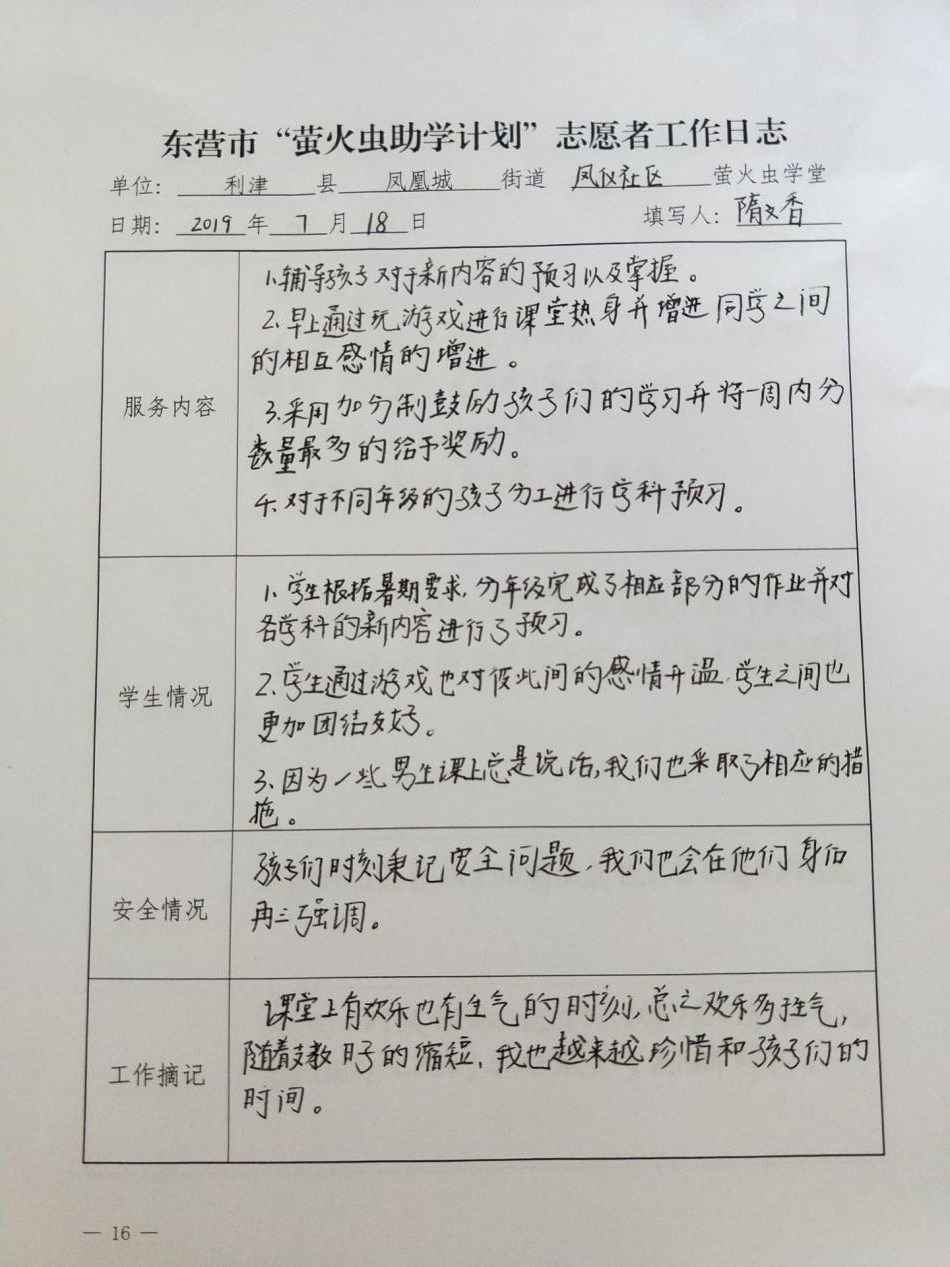 东营市“萤火虫助学计划”志愿者工作日志
单位： 利津 县 凤凰城 街道 凤仪社区 萤火虫学堂
日期： 2019 年 7 月 18 日 填写人： 隋文香
服务内容
1.辅导孩子对于新内容的预习以及掌握。
2.早上通过玩游戏进行课堂热身并增进同学之间
的相互感情的增进。
3.采用加分制鼓励孩子们的学习并将一周内分
数量最多的给予奖励。
4.对于不同年级的孩子分工进行学科预习。
学生情况
1.学生根据暑期要求,分年级完成了相应部分的作业并对
各学科的新内容进行了预习。
2.学生通过游戏也对彼此间的感情升温,学生之间也
更加团结友好。
3.因为一些男生课上总是说话,我们也采取了相应的措
施。
安全情况
孩子们时刻秉记安全问题,我们也会在他们身后
再三强调。
工作摘记
课堂上有欢乐也有生气的时刻,总之欢乐多于生气,
随着支教日子的缩短,我也越来越珍惜和孩子们的
时间。
— 16 —